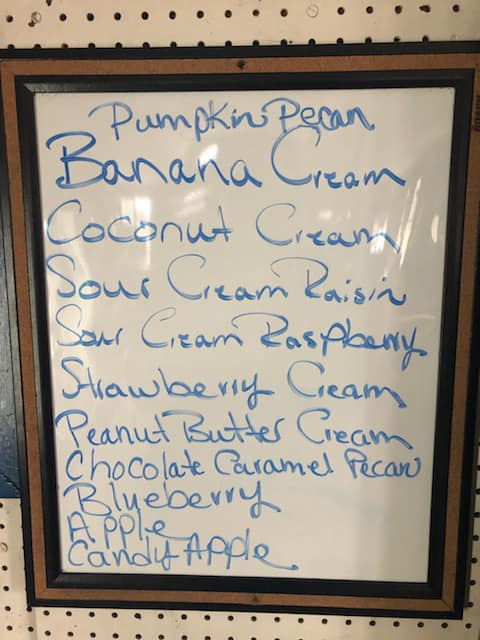 Pumpkin Pecan
Banana Cream
Coconut Cream
Sour Cream Raisin
Sour Cream Raspberry
Strawberry Cream
Peanut Butter Cream
Chocolate Caramel Pecan
Blueberry
Apple
Candy Apple